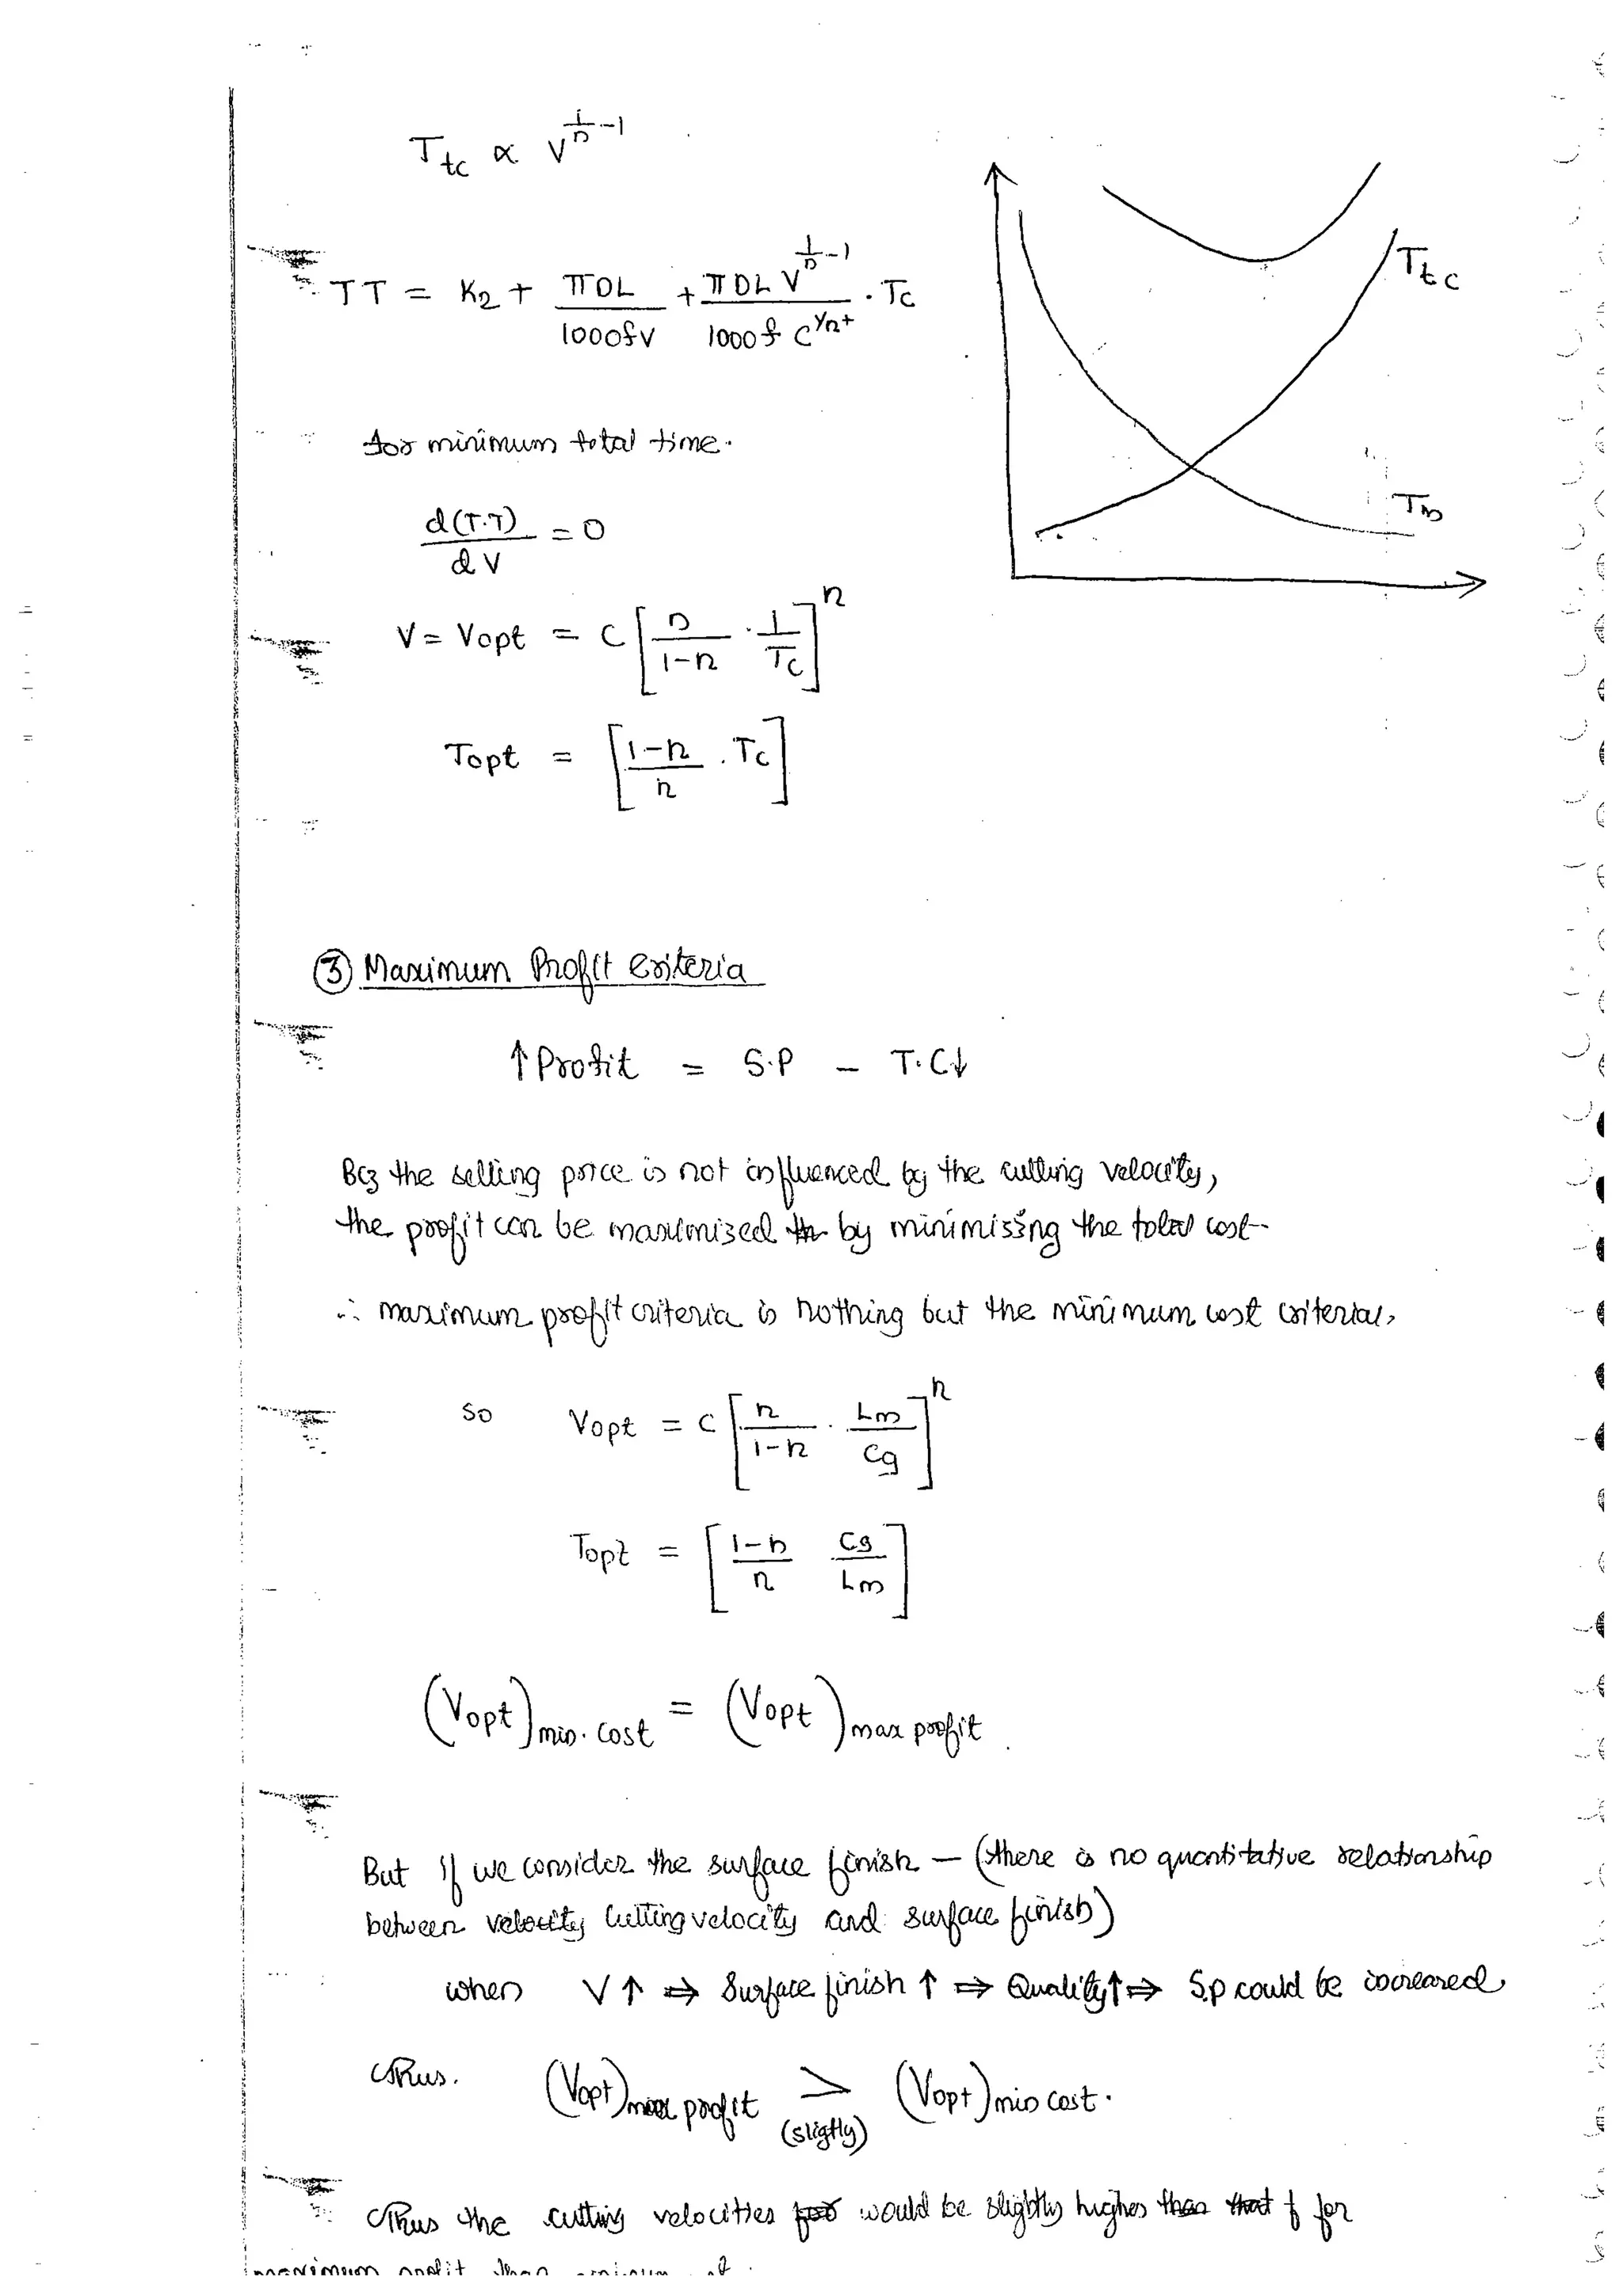 T_tc ∝ V^(1/n - 1)
TT = K2 + πDL/1000fV + πDL V^(1/n - 1)/1000f C^(1/n+) . Tc
Ttc
for minimum total time.
Tm
d(T.T)/dV = 0
V = Vopt = C [n/1-n . 1/Tc]^n
Topt = [1-n/n . Tc]
③ Maximum Profit Criteria
↑ Profit = S.P - T.C↓
Bcz the selling price is not influenced by the cutting velocity,
the profit can be maximized by minimising the total cost
∴ maximum profit criteria is nothing but the minimum cost criteria,
so Vopt = C [n/1-n . Lm/Cg]^n
Topt = [1-n/n Cg/Lm]
(Vopt)min. cost = (Vopt)max profit
But if we consider the surface finish — (there is no quantitative relationship
between velocity cutting velocity and surface finish)
when V ↑ ⇒ Surface finish ↑ ⇒ Quality↑ ⇒ S.p could be increased
Thus. (Vopt)max profit > (sligtly) (Vopt)min cost.
Thus the cutting velocities for would be slightly higher than that f for
maximum profit than minimum